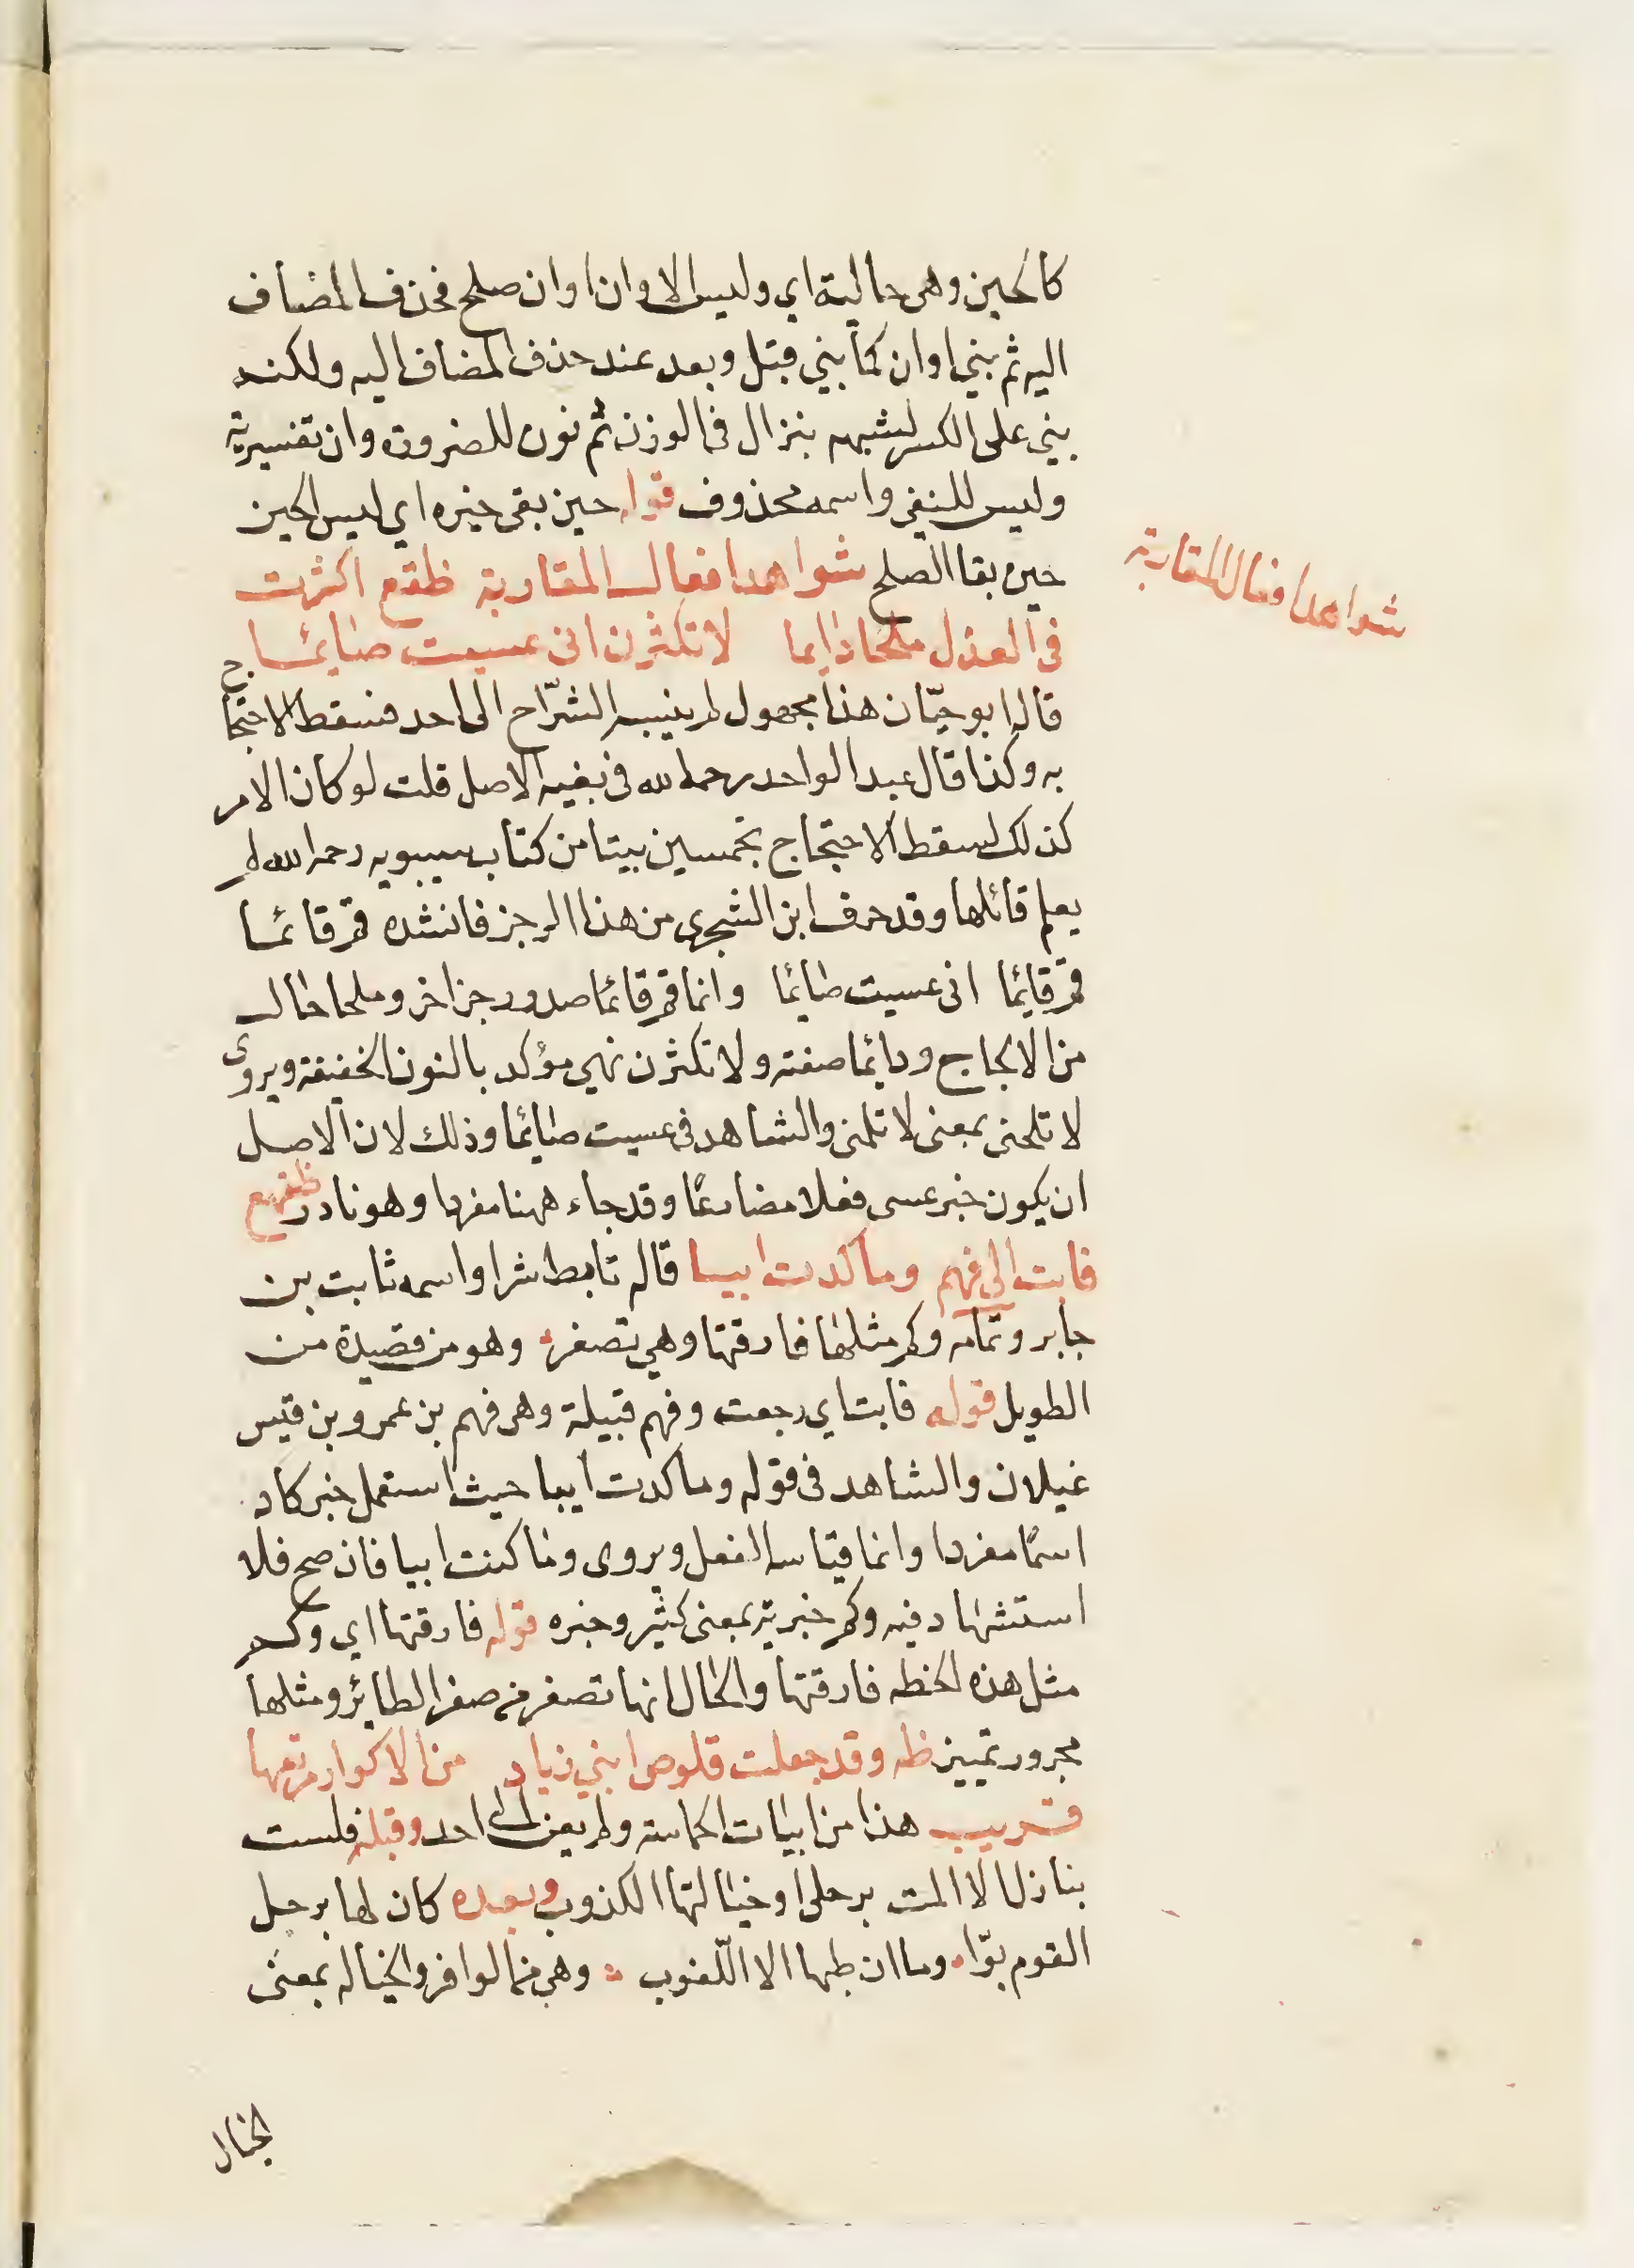 كالحين وهي حالية اي وليس الاوان اوان صلح فحذف المضاف
اليه ثم بني اوان كما بني قبل وبعد عند حذف المضاف اليه ولكنه
بني على الكسر لشبهه بنزال في الوزن ثم نون للضرورة وان تفسيرية
وليس للنفي واسمه محذوف قوله حين بقى خبره اي ليس الحين
حين بقا الصلح شواهد افعال المقاربة ظقهع اكثرت
في العذل ملحا دايما لا تكثرن اني عسيت صايما
قاله ابو حيّان هذا مجهول لم ينسبه الشرّاح الى احد فسقط الاحتجاج
به وكذا قال عبد الواحد رحمه الله في بغيه الاصل قلت لو كان الامر
كذلك لسقط الاحتجاج بخمسين بيتا من كتاب سيبويه رحمه الله لم
يعلم قائلها وقد حرف ابن الشجري من هذا الرجز فانشده قم قائما
قم قايما اني عسيت صايما وانما قم قائما صدر رجز اخر وملحا حال
من الالحاح ودايما صفته ولا تكثرن نهي مؤكد بالنون الخفيفة ويروى
لا تلحني بمعنى لا تلمني والشاهد في عسيت صايما وذلك لان الاصل
ان يكون خبر عسى فعلا مضارعا وقد جاء ههنا مفردا وهو نادر ظقهع
فابت الى فهم وما كدت ايبا قاله تابط شرا واسمه ثابت بن
جابر وتمامه وكم مثلها فارقتها وهي تصفر وهو من قصيدة من
الطويل قوله فابت اي رجعت وفهم قبيلة وهي فهم بن عمرو بن قيس
غيلان والشاهد في قوله وما كدت ايبا حيث استعمل خبر كاد
اسما مفردا وانما قياسه الفعل ويروى وما كنت ايبا فان صح فلا
استشهاد فيه وكم خبرية بمعنى كثير وخبره قوله فارقتها اي وكم
مثل هذه الخطه فارقتها والحال انها تصفر من صفر الطائر ومثلها
مجرور تمييز ظه وقد جعلت قلوص ابني زياد من الاكوار مرتعها
قريب هذا من ابيات الحماسة ولم يعز الى احد وقبله فلست
بنازل الا المت برحلي او خيالتها الكذوب وبعده كان لها برحل
القوم بوّا وما ان طبها الا اللّغوب وهي من الوافر والخياله بمعنى
الخيال
شواهد افعال المقاربة